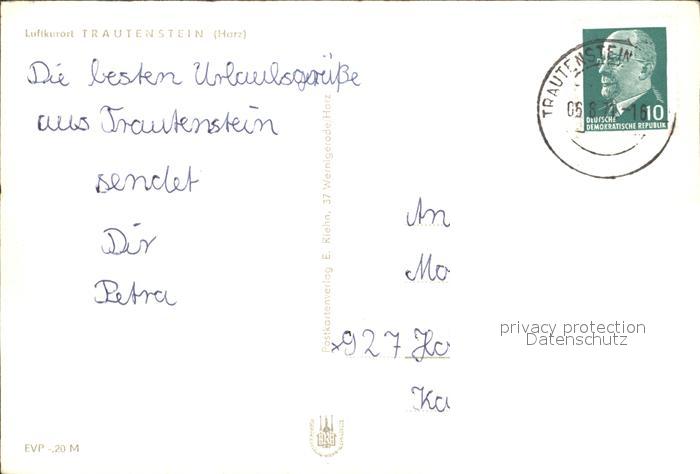 Luftkurort TRAUTENSTEIN (Harz)
Die besten Urlaubsgrüße
aus Trautenstein
sendet
Dir
Petra
Postkartenverlag E. Riehn, 37 Wernigerode/Harz
TRAUTENSTEIN
10
DEUTSCHE
DEMOKRATISCHE REPUBLIK
An
Mo
x927 Ho
Ka
privacy protection
Datenschutz
EVP -,20 M